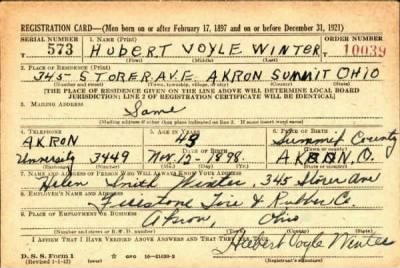 REGISTRATION CARD—(Men born on or after February 17, 1897 and on or before December 31, 1921)
SERIAL NUMBER 1. NAME (Print) ORDER NUMBER
573 HUBERT VOYLE WINTER 10039
(First) (Middle) (Last)
2. PLACE OF RESIDENCE (Print)
345 STORER AVE AKRON SUMMIT OHIO
(Number and street) (Town, township, village, or city) (County) (State)
[THE PLACE OF RESIDENCE GIVEN ON THE LINE ABOVE WILL DETERMINE LOCAL BOARD
JURISDICTION; LINE 2 OF REGISTRATION CERTIFICATE WILL BE IDENTICAL]
3. MAILING ADDRESS
Same
[Mailing address if other than place indicated on line 2. If same insert word same]
4. TELEPHONE 5. AGE IN YEARS 6. PLACE OF BIRTH
AKRON 43 Summit County
DATE OF BIRTH
University 3449 Nov. 12 1898 AKRON, O.
(Exchange) (Number) (Mo.) (Day) (Yr.) (Town or county) (State or country)
7. NAME AND ADDRESS OF PERSON WHO WILL ALWAYS KNOW YOUR ADDRESS
Helen Smith Winter, 345 Storer Ave
8. EMPLOYER'S NAME AND ADDRESS
Firestone Tire & Rubber Co.
9. PLACE OF EMPLOYMENT OR BUSINESS
Akron, Ohio
(Number and street or R. F. D. number) (Town) (County) (State)
I AFFIRM THAT I HAVE VERIFIED ABOVE ANSWERS AND THAT THEY ARE TRUE.
D. S. S. Form 1
(Revised 1-1-42) GPO 16—21630-2
Hubert Voyle Winter